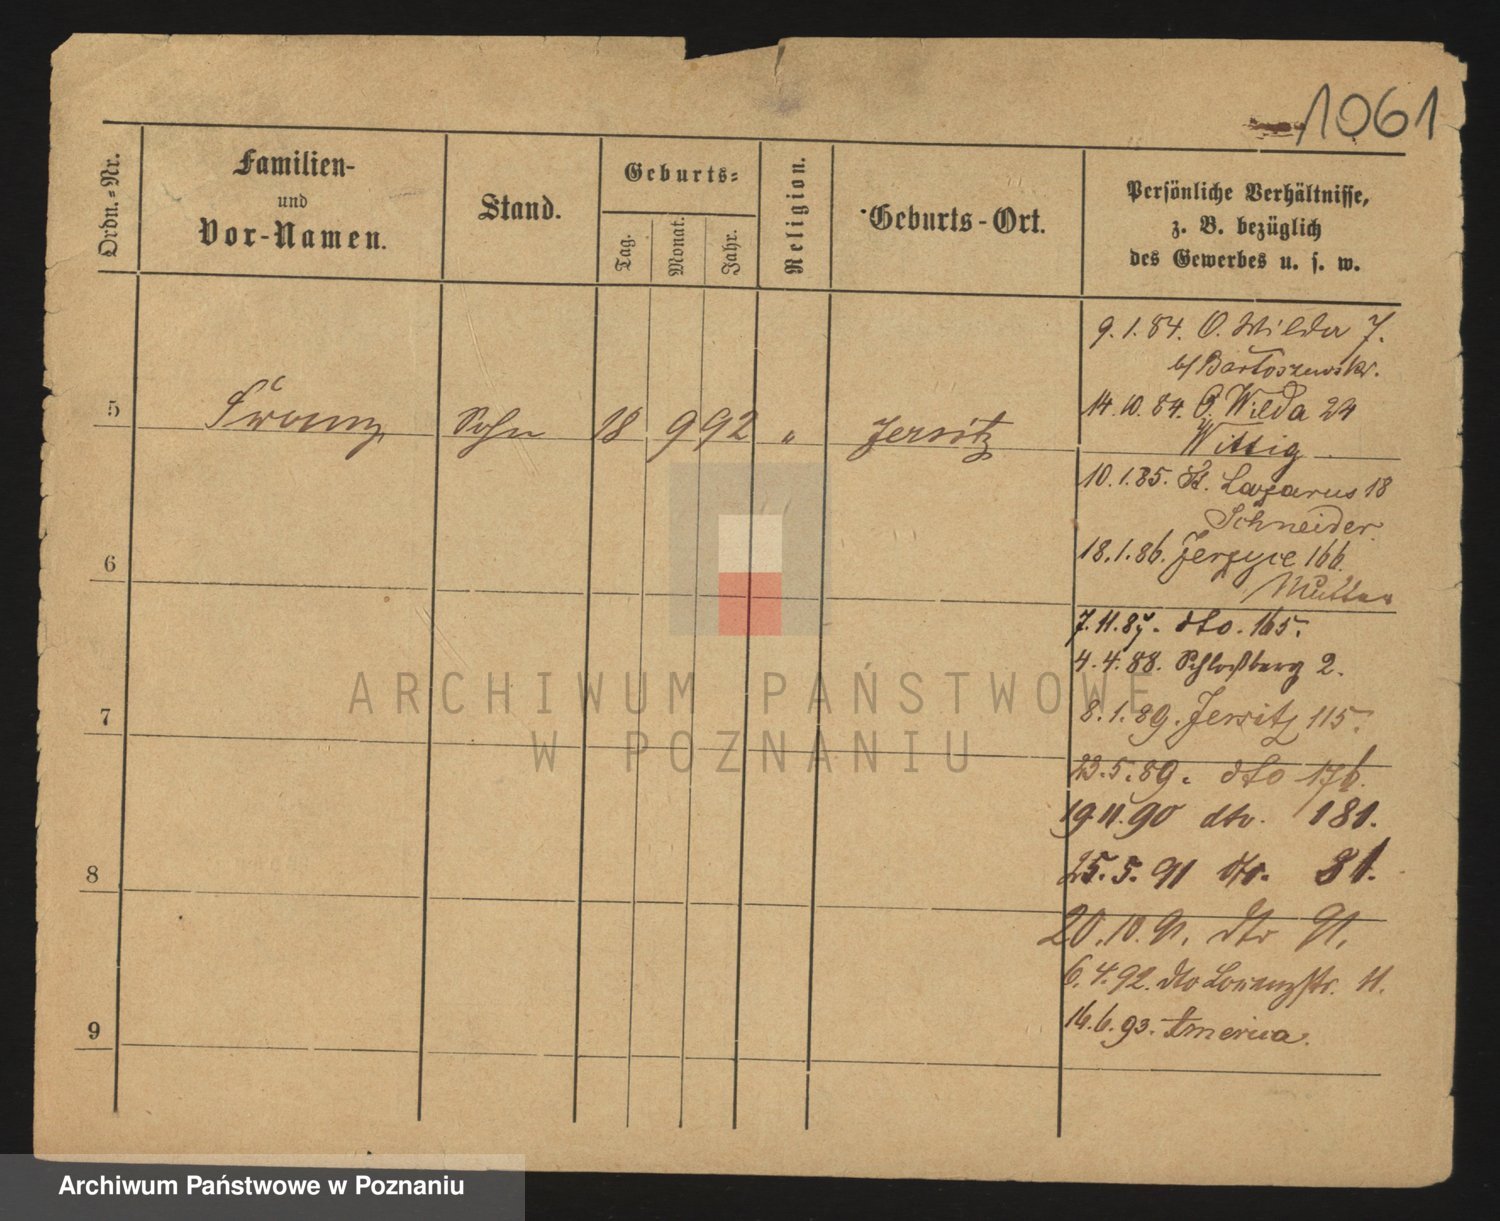 1061
Ordn.-Nr.
Familien-
und
Vor-Namen.
Stand.
Geburts-
Tag.
Monat.
Jahr.
Religion.
Geburts-Ort.
Persönliche Verhältnisse,
z. B. bezüglich
des Gewerbes u. s. w.
5 Franz Sohn 18 9 92 " Jersitz
6
7
8
9
9.1.84. O. Wilda 7.
b/ Bartoszewski.
14.10.84. O. Wilda 24
Wittig
10.1.85. St. Lazarus 18
Schneider.
18.1.86. Jerzyce 166.
7.11.87. dto. 165.
4.4.88. Schloßberg 2.
8.1.89. Jersitz 115.
23.5.89. dto 176.
19.11.90 dto. 181.
25.5.91 dto. 81.
20.10.91. dto 91.
6.4.92. dto 11.
16.6.93. America.
ARCHIWUM PAŃSTWOWE
W POZNANIU
Archiwum Państwowe w Poznaniu